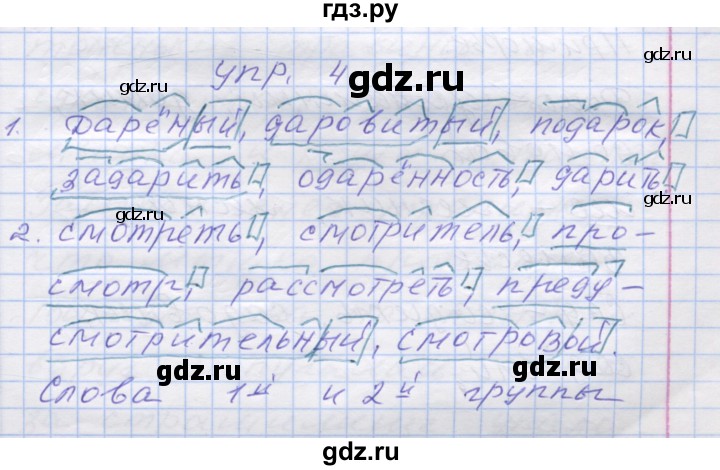 гдз.ру
упр. 4
gdz.ru
gdz.ru
gdz.ru
1. Дарёный, даровитый, подарок,
задарить, одарённость, дарить.
gdz.ru
gdz.ru
2. смотреть, смотритель, про-
смотр, рассмотреть, преду-
смотрительный, смотровой.
gdz.ru
gdz.ru
Слова 1й и 2й группы
gdz.ru